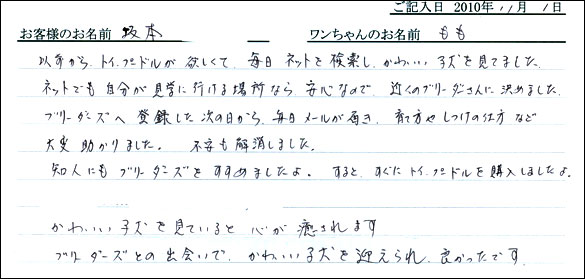 ご記入日 2010年 11月 1日
お客様のお名前 坂本 ワンちゃんのお名前 もも
以前から、トイ.プードルが欲しくて、毎日ネットを検索し、かわいい子犬を見てました。
ネットでも自分が見学に行ける場所なら、安心なので、近くのブリーダーさんに決めました。
ブリーダーズへ登録した次の日から、毎日メールが届き、育て方やしつけの仕方など
大変助かりました。不安も解消しました。
知人にもブリーダーズをすすめましたよ。すると、すぐにトイ.プードルを購入しましたよ。
かわいい子犬を見ていると心が癒されます
ブリーダーズとの出会いで、かわいい子犬を迎えられ、良かったです。